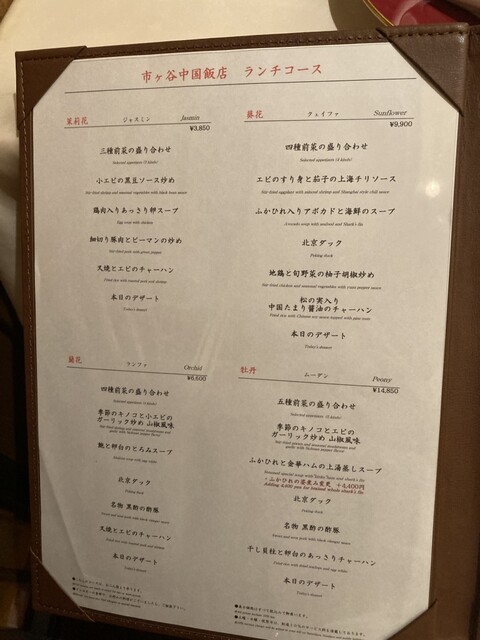 市ヶ谷中国飯店　ランチコース
茉莉花　ジャスミン　Jasmin
¥3,850
三種前菜の盛り合わせ
Selected appetizers (3 kinds)
小エビの黒豆ソース炒め
Stir-fried shrimp and seasonal vegetables with black bean sauce
鶏肉入りあっさり卵スープ
Egg soup with chicken
細切り豚肉とピーマンの炒め
Stir-fried pork with green pepper
叉焼とエビのチャーハン
Fried rice with roasted pork and shrimp
本日のデザート
Today's dessert
葵花　クェイファ　Sunflower
¥9,900
四種前菜の盛り合わせ
Selected appetizers (4 kinds)
エビのすり身と茄子の上海チリソース
Stir-fried eggplant with minced shrimp and Shanghai style chili sauce
ふかひれ入りアボカドと海鮮のスープ
Avocado soup with seafood and Shark's fin
北京ダック
Peking duck
地鶏と旬野菜の柚子胡椒炒め
Stir-fried chicken and seasonal vegetables with yuzu pepper sauce
松の実入り
中国たまり醤油のチャーハン
Fried rice with Chinese soy sauce topped with pine nuts
本日のデザート
Today's dessert
蘭花　ランファ　Orchid
¥6,600
四種前菜の盛り合わせ
Selected appetizers (4 kinds)
季節のキノコと小エビの
ガーリック炒め 山椒風味
鮑と卵白のとろみスープ
北京ダック
Peking duck
名物 黒酢の酢豚
叉焼とエビのチャーハン
Fried rice with roasted pork and shrimp
本日のデザート
Today's dessert
牡丹　ムーダン　Peony
¥14,850
五種前菜の盛り合わせ
Selected appetizers (5 kinds)
季節のキノコとエビの
ガーリック炒め 山椒風味
ふかひれと金華ハムの上海蒸しスープ
・ふかひれの姿煮込み変更　＋4,400円
北京ダック
Peking duck
名物 黒酢の酢豚
干し貝柱と卵白のあっさりチャーハン
本日のデザート
Today's dessert